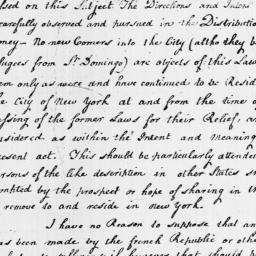 ssed on this Subject The Directions and Intent
carefully observed and pursued in the Distributio
oney — No new Comers into the City (altho they b
fugees from St. Domingo) are objects of this Law
em only as were and have continued to be Resid
e City of New York at and from the time o
assing of the former Laws for their Relief, a
nsidered as within the Intent and Meaning
resent act. This should be particularly attende
ersons of the like description in other States
ntited by the prospect or hope of sharing in th
remove to and reside in New york.
I have no Reason to suppose that an
as been made by the french Republic or oth
however that should